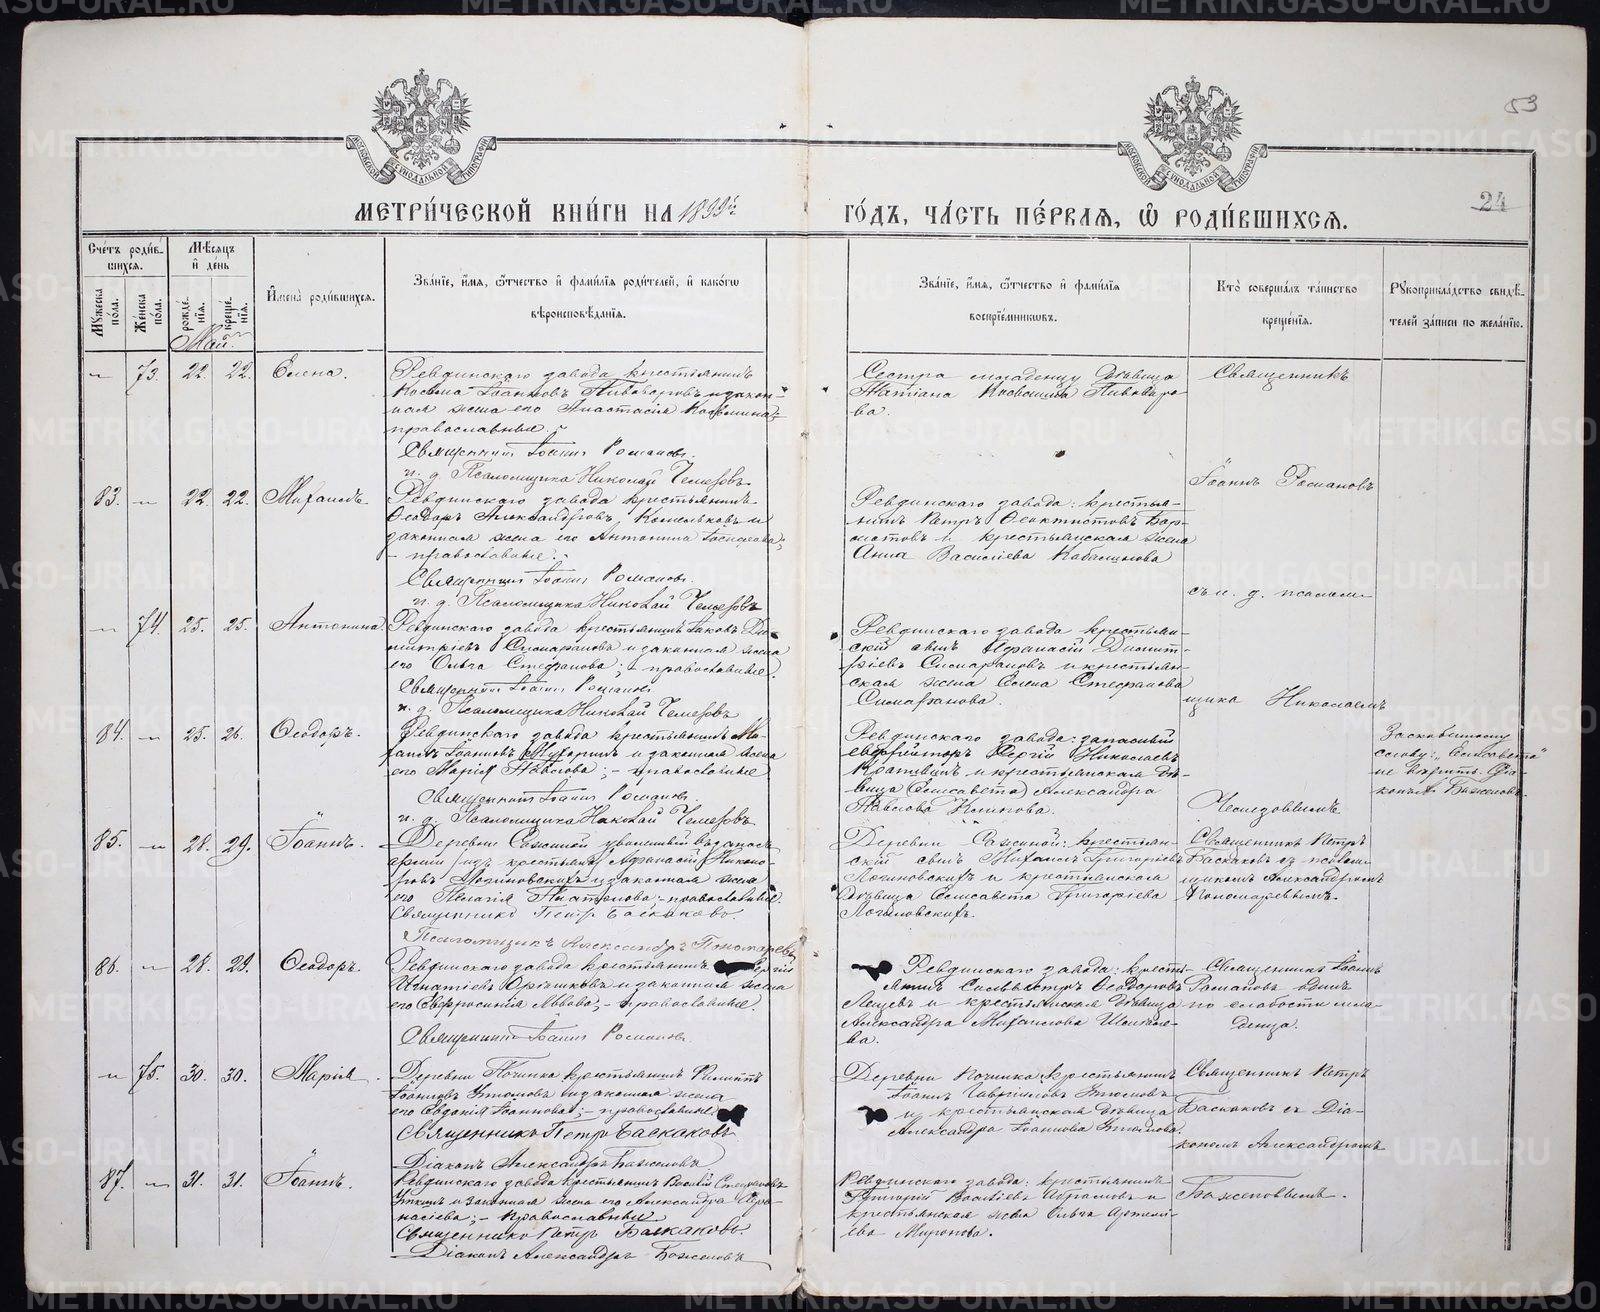 53
24
МЕТРИ́ЧЕСКОЙ КНИ́ГИ НА 1899й
ГО́ДЪ, ЧА́СТЬ ПЕ́РВАѦ, Ѡ҆ РОДИ́ВШИХСѦ.
Сче́тъ роди́в-
шихся.
Мѣсяцъ
и҆ де́нь
Мꙋжеска по́ла.
Же́нска по́ла.
рожде́нїѧ.
креще́нїѧ.
И҆мена̀ роди́вшихся.
Зва́нїе, и҆́мѧ, ѻ҆́тчество и҆ фами́лїѧ роди́телей, и҆ како́гѡ
вѣроисповѣ́данїѧ.
Зва́нїе, и҆́мѧ, ѻ҆́тчество и҆ фами́лїѧ
воспрїе́мниковъ.
Кто̀ соверша́лъ та́инство
креще́нїѧ.
Рꙋкоприкла́дство свидѣ́-
телей за́писи по жела́нїю.
Май.
„ 73. 22. 22. Елена.
Ревдинскаго завода крестьянинъ
Косьма Іоанновъ Пивоваровъ и закон-
ная жена его Анастасія Косьмина,
православные.
Священникъ Іоаннъ Романовъ.
и. д. Псаломщика Николай Чемезовъ
Сестра младенцу дѣвица
Татіана Косьмина Пивоваро-
ва.
Священникъ
Іоаннъ Романовъ
83. „ 22. 22. Михаилъ.
Ревдинскаго завода крестьянинъ
Ѳеодоръ Александровъ и
законная жена его Антонина
православные.
Священникъ Іоаннъ Романовъ.
и. д. Псаломщика Николай Чемезовъ
Ревдинскаго завода: крестья-
нинъ Петръ Ѳеоктистовъ Бар-
и крестьянская жена
Анна Василіева Кабалинова
съ и. д. псалом-
„ 74. 25. 25. Антонина.
Ревдинскаго завода крестьянинъ Іаковъ Ди-
митріевъ и законная жена
его Ольга Стефанова; православные.
Священникъ Іоаннъ Романовъ
и. д. Псаломщика Николай Чемезовъ
Ревдинскаго завода крестьян-
скій сынъ Аѳанасій Димит-
ріевъ и крестьян-
ская жена Елена Стефанова
щика Николаемъ
84. „ 25. 26. Ѳеодоръ.
Ревдинскаго завода крестьянинъ Ми-
хаилъ Іоанновъ Мухоринъ и законная жена
его Марія Павлова; православные
Священникъ Іоаннъ Романовъ.
и. д. Псаломщика Николай Чемезовъ
Ревдинскаго завода: запасный
ефрейторъ Сергій Николаевъ
и крестьянская дѣ-
вица (Елисавета) Александра
Павлова Климова.
Чемезовымъ
За скобленному
слову: „Елисавета"
не вѣрить. Діа-
конъ А. Баженовъ.
85. „ 28. 29. Іоаннъ.
Деревни Сажиной уволенный въ запасъ
арміи (изъ крестьянъ) Аѳанасій Никано-
ровъ Логиновскихъ и законная жена
его Пелагія Платонова; православные.
Священникъ Петръ Баскаковъ.
Псаломщикъ Александръ Пономаревъ
Деревни Сажиной: крестьян-
скій сынъ Михаилъ Григоріевъ
Логиновскихъ и крестьянская
дѣвица Елисавета Григоріева
Логиновскихъ.
Священникъ Петръ
Баскаковъ съ псалом-
щикомъ Александромъ
Пономаревымъ.
86. „ 28. 29. Ѳеодоръ.
Ревдинскаго завода крестьянинъ
Игнатіевъ и законная жена
его Евфросинія Львова; православные.
Священникъ Іоаннъ Романовъ.
Ревдинскаго завода: кресть-
янинъ Сильвестръ Ѳеодоровъ
и крестьянская дѣвица
Александра Михаилова
ва.
Священникъ Іоаннъ
Романовъ одинъ
по слабости мла-
денца.
„ 75. 30. 30. Марія.
Деревни Починка крестьянинъ Филиппъ
Іоанновъ Утюмовъ и законная жена
его Евдокія Іоаннова; православные
Священникъ Петръ Баскаковъ
Діаконъ Александръ Баженовъ.
Деревни Починка: крестьянинъ
Іоаннъ Гавриловъ Утюмовъ
и крестьянская дѣвица
Александра Іоаннова Утюмова.
Священникъ Петръ
Баскаковъ съ Діа-
кономъ Александромъ
Баженовымъ.
87. „ 31. 31. Іоаннъ.
Ревдинскаго завода крестьянинъ Василій Стефановъ
и законная жена его Александра Аѳа-
насіева; православные.
Священникъ Петръ Баскаковъ.
Діаконъ Александръ Баженовъ
Ревдинскаго завода: крестьянинъ
Григорій Василіевъ Абрамовъ и
крестьянская жена Ольга Артемі-
ева Миронова.